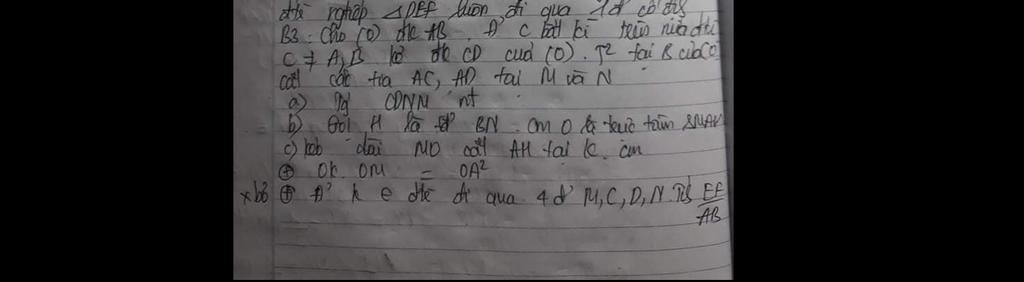 nghiệp ΔDEF luôn đi qua 1 đ cố
B3: Cho (O) đk AB. Đ' C bất kì trên nửa đt
C ≠ A, B kẻ đk CD của (O). T² tại B của (O
cắt các tia AC, AD tại M và N
a) Tg CDNM nt
b) Gọi H là tđ BN. Cm O là trực tâm ΔMAH
c) kéo dài MO cắt AH tại K. Cm
⊕ OK. OM = OA²
⊕ Đ' K ∈ đtr đi qua 4 đ' M, C, D, N. EF/AB